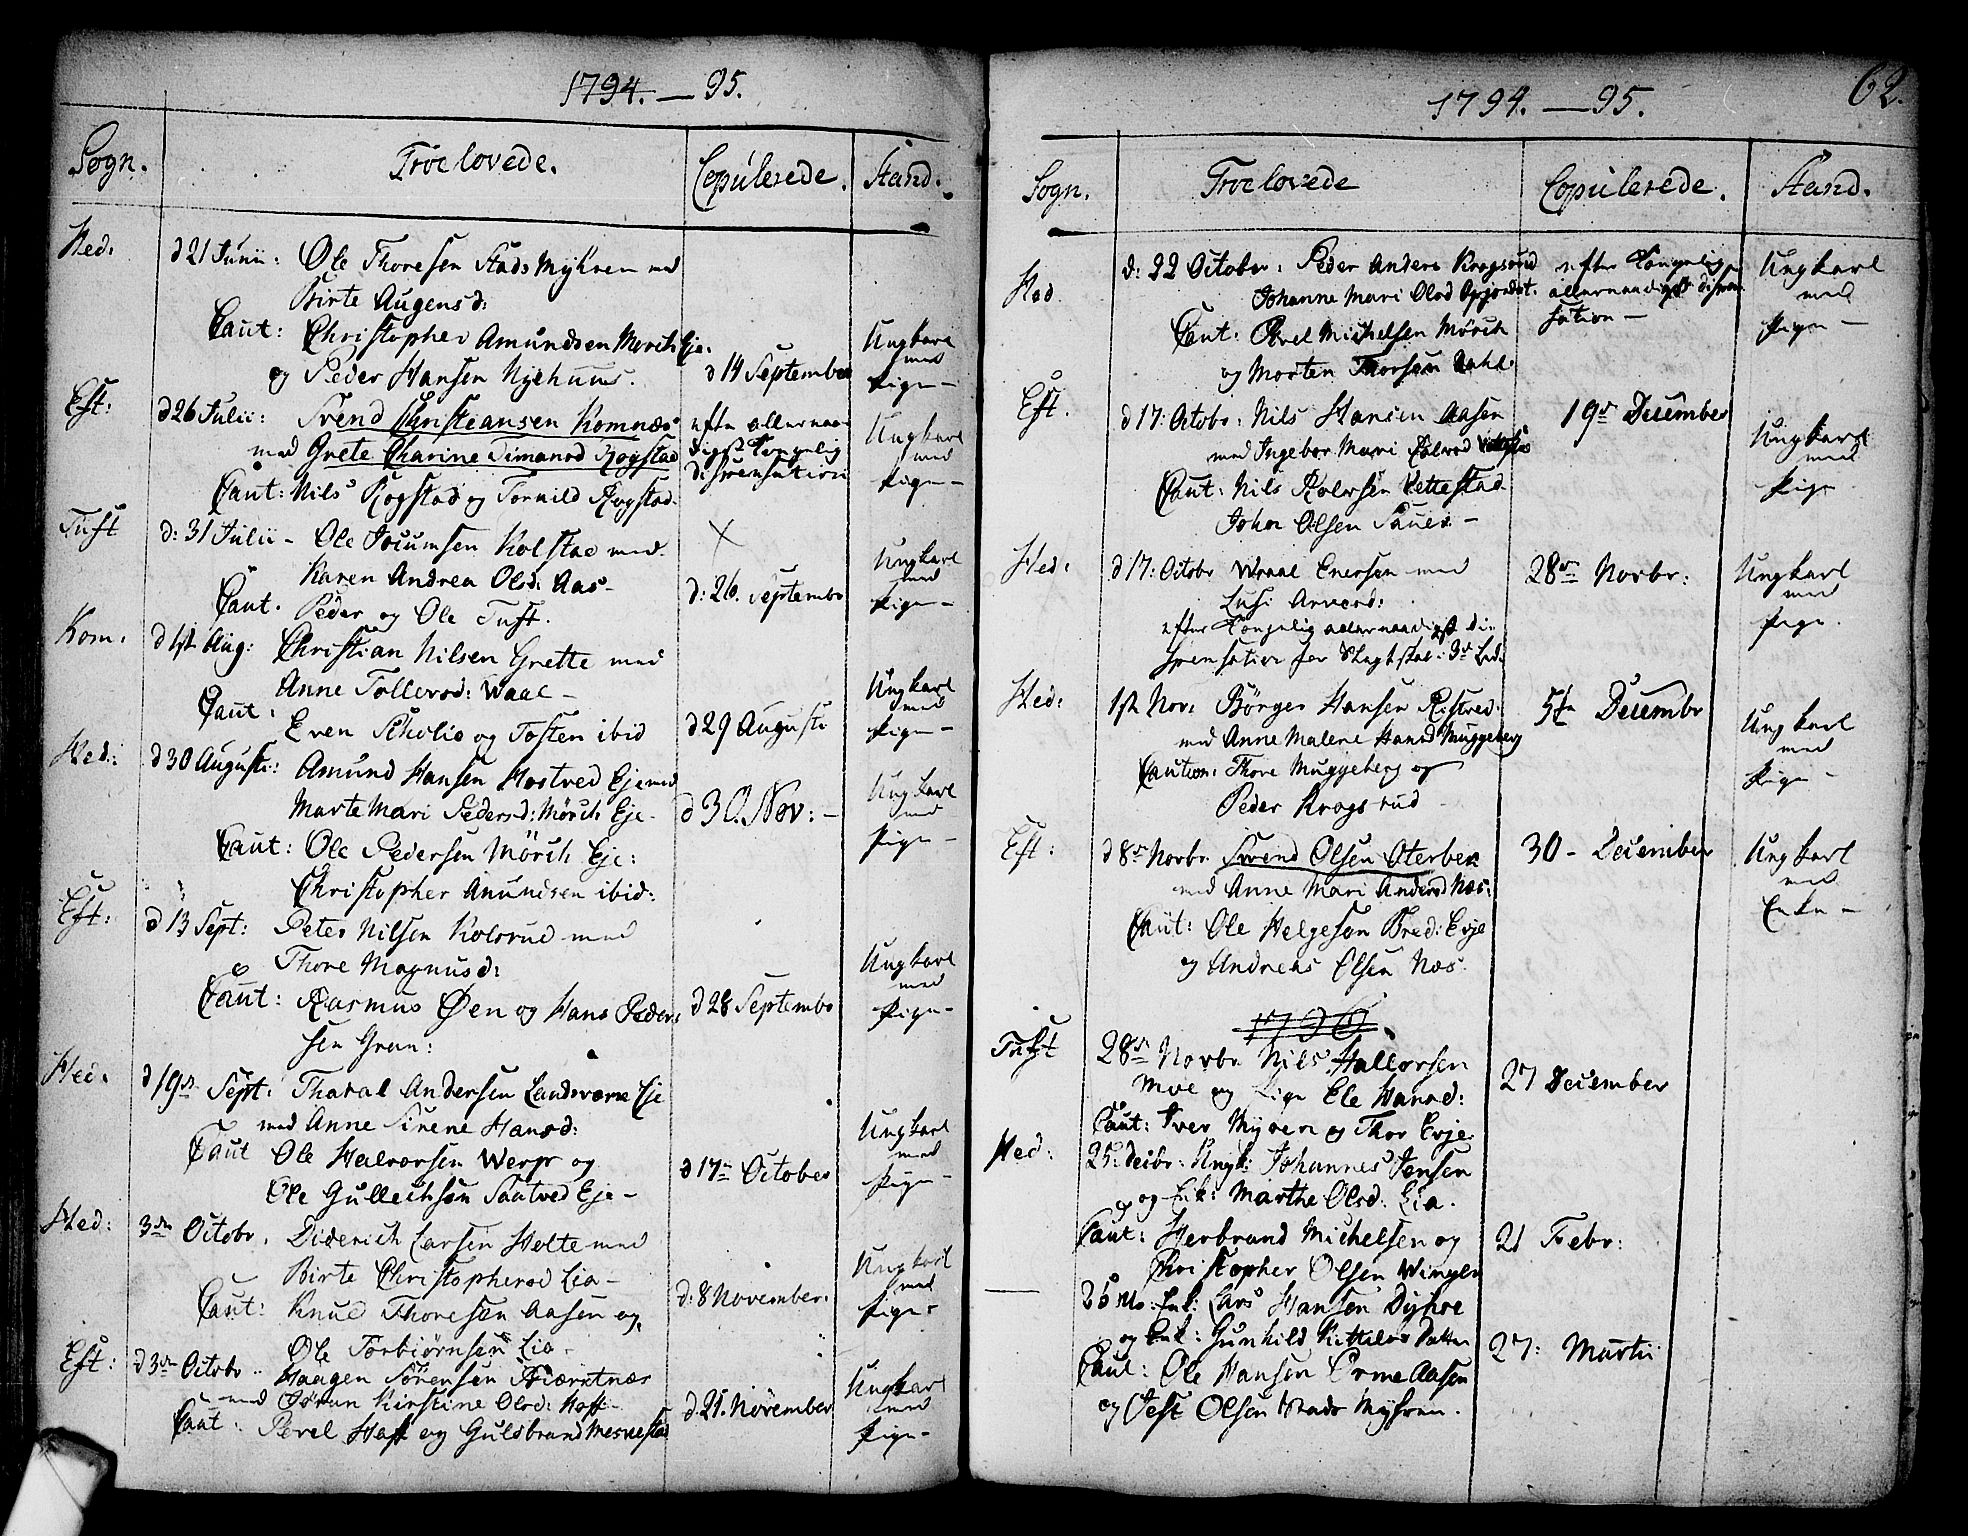 1794. — 95.
Sogn. Troelovede. Copulerede. Stand.
Hed: d 21 Junii: Ole Thoresen Stads Myhren med
Birte Augensd:
Caut: Christopher Amundsen Mørch Eje.
og Peder Hansen Nyehuus. d 14 September Ungkarl med Pige —
Eft: d 26 Julii: Svend Christiansen Komnæs
med Grete Chatrine Simansd Rogstad
Caut: Nils Rogstad og Tormild Rogstad. efter allernaadigst Kongelig dispensation Ungkarl med Pige —
Tuft d: 31 Julii — Ole Jocumsen Kolstad med
Karen Andrea Olsd: Aas —
Caut. Peder og Ole Tuft. d: 26. Septembr Ungkarl med Pige —
Kom: d 1st Aug: Christian Nilsen Grette med
Anne Tollevsd: Waal —
Caut: Even Skolie og Tosten ibid d 29 Augusti Ungkarl med Pige —
Hed: d 30 Augusti: Amund Hansen Hostved Eje med
Marte Mari Pedersd: Mørch Eje —
Caut: Ole Pedersen Mörch Eje:
Christopher Amundsen ibid: d 30. Nov: — Ungkarl med Pige —
Eft: d 13 Sept: Peter Nilsen Kolsrud med
Thore Magnusd:
Caut: Rasmus Øen og Hans Peder-
sen Gran: d 28 Septembr Ungkarl med Pige —
Hed. d 19de Sept: Tharal Andersen Landsværk Eje
med Anne Sirene Hansd:
Caut Ole Halvorsen Werp og
Ole Gullechsen Saatved Eje — d 17de October Ungkarl med Pige —
Hed: 3de Octobr. Diderich Larsen Holte med
Birte Christophersd Lia —
Caut: Knud Thoresen Aasen og
Ole Torbiørnsen Lia — d: 8 November: Ungkarl med Pige
Eft: d 3de Octobr Haagen Sørensen
med Jøran Kirstine Olsd: Hoff —
Caut: Povel Hoff og Gulbrand d. 21. November Ungkarl med Pige —
62.
1794. — 95.
Sogn. Troelovede Copulerede. Stand.
Hed d: 22 Octobr: Peder Anders Krogsrud
Johanne Mari Olsd
Caut: Povel Michelsen Mörch
og Morten Thorsen Dahl. efter Kongelig allernaadigst dispensation — Ungkarl med Pige —
Eft. d 17: Octobr: Nils Hansen Aasen
med Ingebor Mari
Caut: Nils Rolersen Vettestad
Johan Olsen Sauer — 19de December Ungkarl med Pige
Hed: d 17: Octobr Wraal Enersen med
Lusi Arvesd:
efter Kongelig allernaadigst di-
spensation for Slegtskab i 3de Led. 28de Novbr: Ungkarl med Pige.
Hed: 1st Nov: Börger Hansen
med Anne Malene Hansd Muggeberg
Caution: Thore Muggeberg og
Peder Krogsrud — 5te Decembr Ungkarl med Pige —
Eft: d 8de Novbr. Svend Olsen Oterbek
med Anne Mari Andersd Næs:
Caut: Ole Helgesøn Bred: Evje
og Andreas Olsen Næs. 30 — December Ungkarl med Enke —
1796.
Tuft 28de Novbr Nils Hallorsen
Moe og Pige Ele Hansd:
Caut: Iver Myren og Thor Evje 27 December
Hed: 25: Decbr: Ungk: Johannes Jensen
og Enk: Marthe Olsd: Lia.
Caut: Herbrand Michelsen og
Christopher Olsen Wingen 21 Febr:
— 26 Enk: Lars Hansen Dyhre
og Enk: Gunhild Kittelsdatter
Caut: Ole Hansen Orme Aasen
og Jest Olsen Stads Myhren. 27: Martii